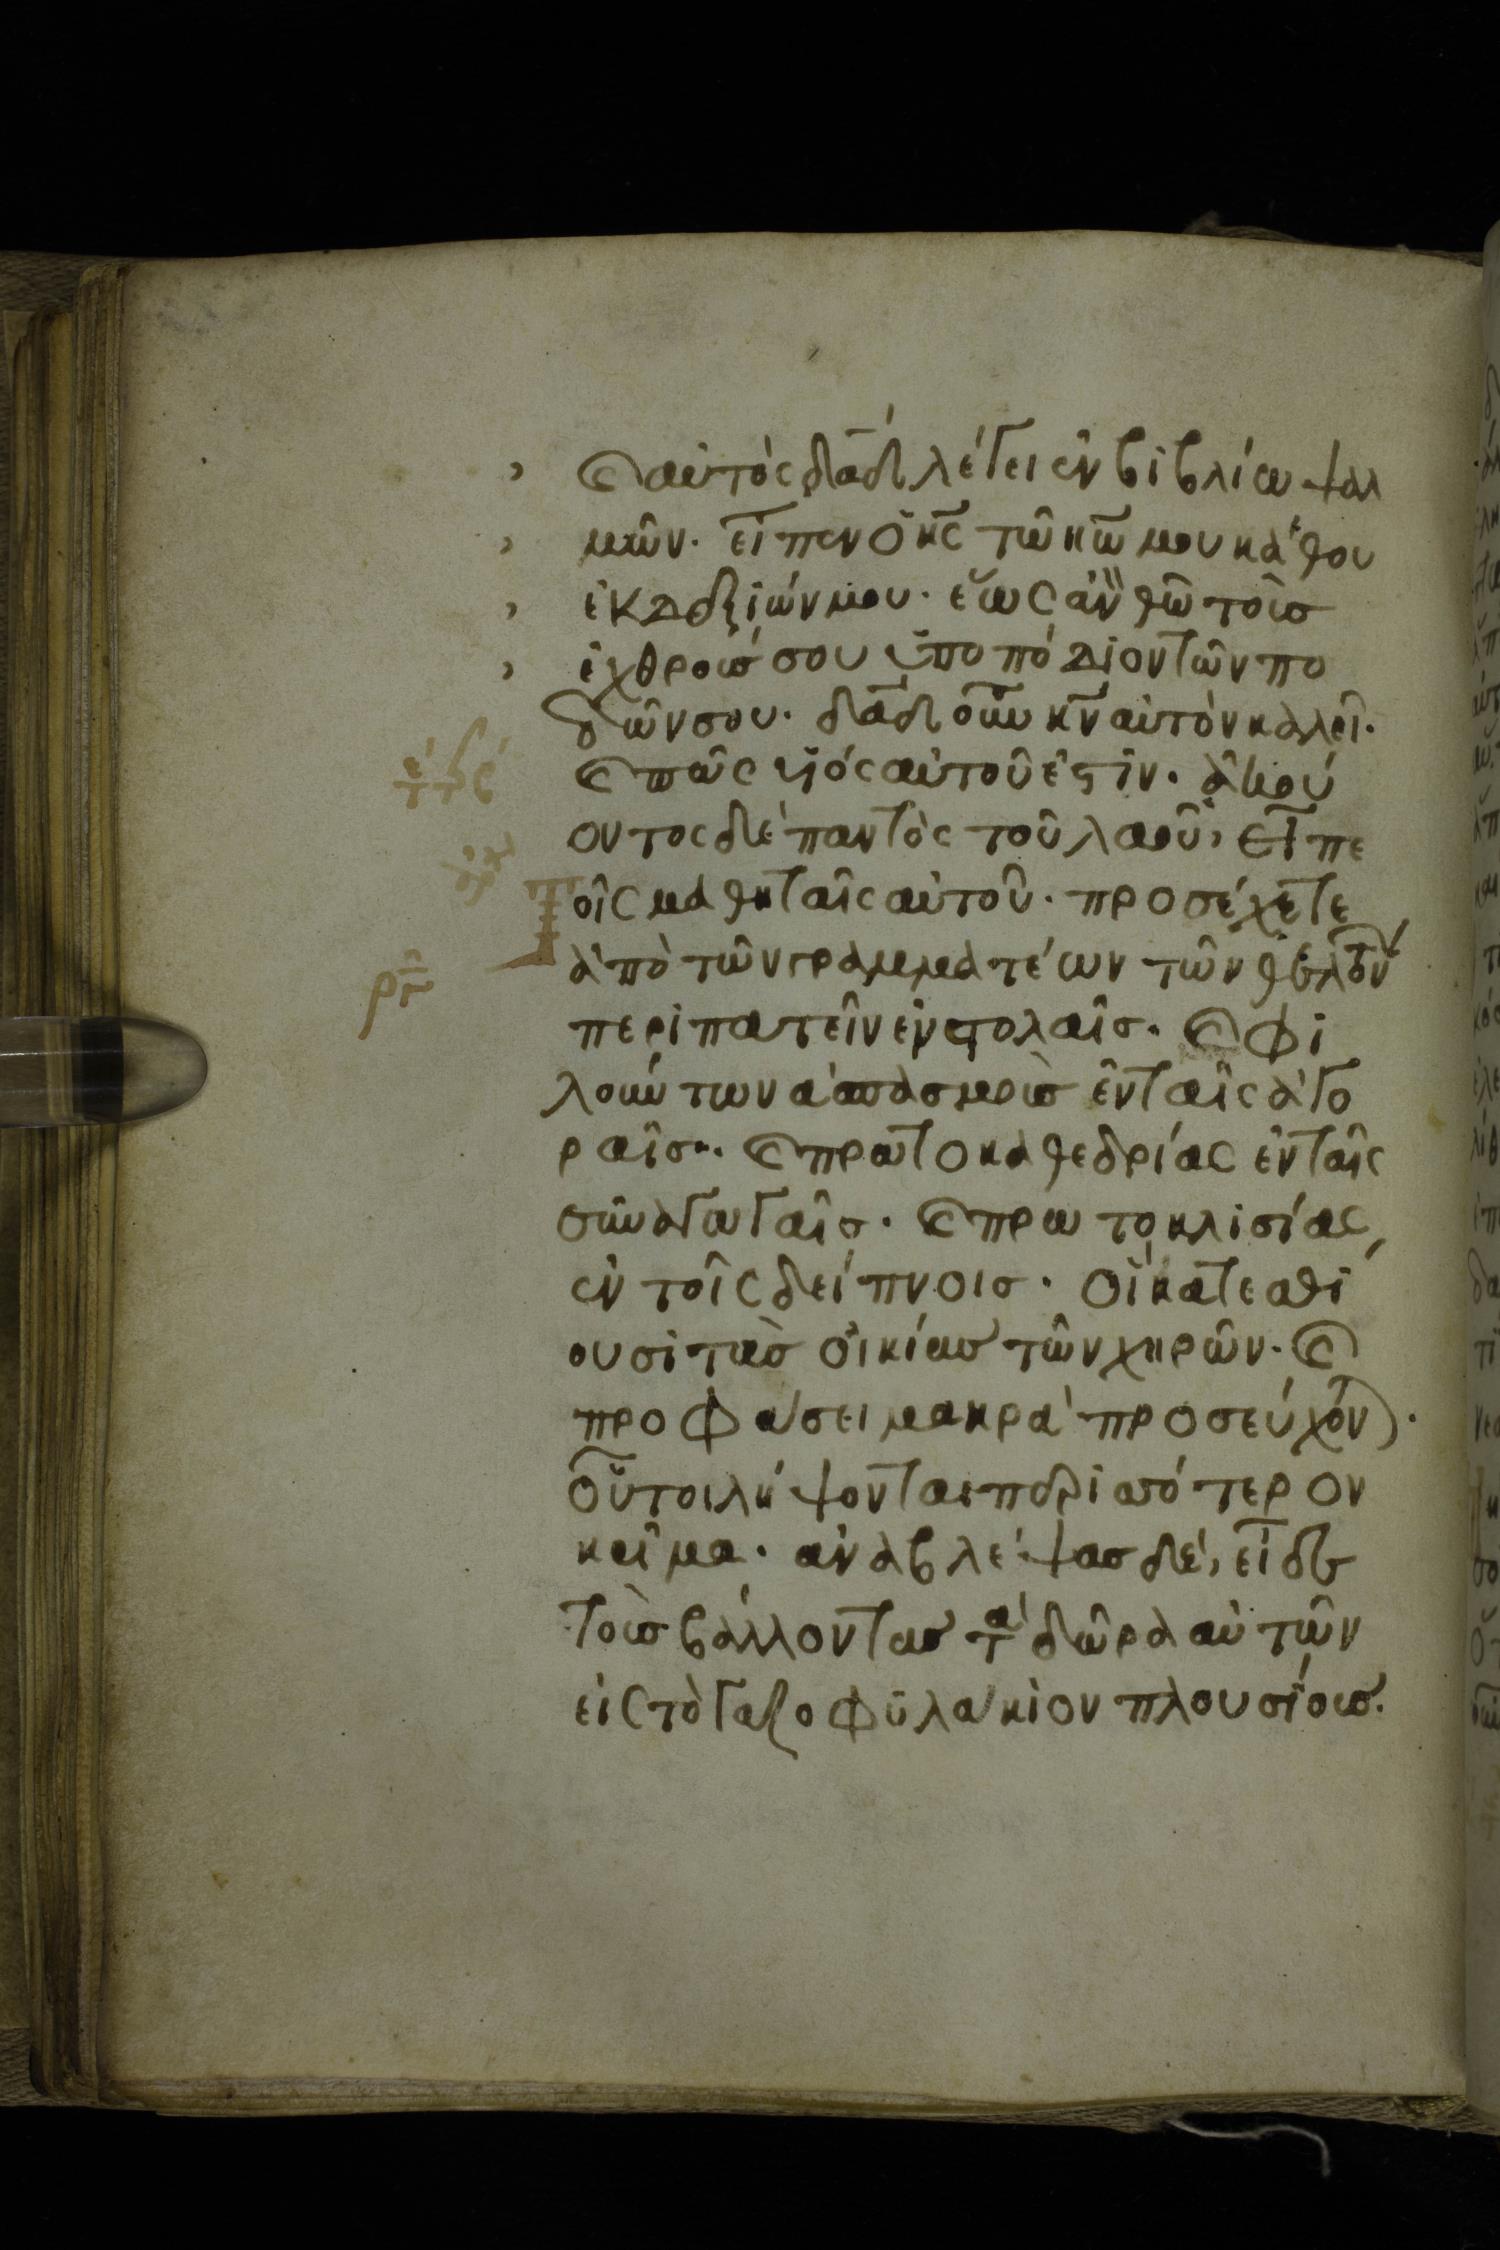 καὶ αὐτὸς δᾱδ λέγει ἐν βιβλίω ψαλ
μῶν· εἶπεν ὁ κ̄ς τῶ κ̄ω μου κάθου
ἐκ δεξιῶν μου· ἕως ἂν θῶ τοὺσ
ἐχθρούσ σου ὑποπόδιον τῶν πο
δῶν σου· δᾱδ οὖν κ̄ν αὐτὸν καλεῖ·
καὶ πῶς υἱός αὐτοῦ ἐστιν· ἀκού
οντος δὲ παντὸς τοῦ λαοῦ, εἶπε
τοῖς μαθηταῖς αὐτοῦ· προσέχετε
ἀπὸ τῶν γραμματέων τῶν θελόντων
περιπατεῖν ἐν στολαῖσ· καὶ φι
λούντων ἀσπασμοὺσ ἐν ταῖς ἀγο
ραῖσ· καὶ πρωτοκαθεδρίας ἐν ταῖς
συναγωγαῖσ· καὶ πρωτοκλισίας
ἐν τοῖς δείπνοισ· οἳ κατεσθί
ουσι τὰσ οἰκίασ τῶν χηρῶν· καὶ
προφάσει μακρὰ προσεύχονται·
οὗτοι λήψονται περισσότερον
κρῖμα· ἀναβλέψασ δέ, εἶδε
τοὺσ βάλλοντασ τὰ δῶρα αὐτῶν
εἰς τὸ γαζοφυλάκιον πλουσίουσ·